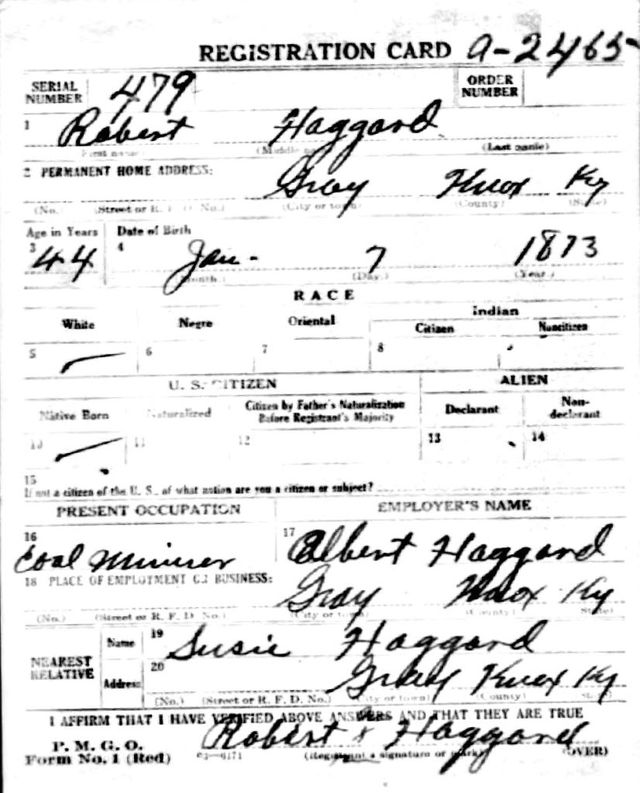 REGISTRATION CARD A-2465
SERIAL NUMBER 479 ORDER NUMBER
1 Robert Haggard
First name (Middle name) (Last name)
2 PERMANENT HOME ADDRESS:
Gray Knox Ky
(No.) (Street or R. F. D. No.) (City or town) (County) (State)
Age in Years Date of Birth
3 44 4 Jan- 7 1873
(Month.) (Day.) (Year.)
RACE
White Negro Oriental Indian
Citizen Noncitizen
5 6 7 8
U. S. CITIZEN ALIEN
Native Born Naturalized Citizen by Father's Naturalization Before Registrant's Majority Declarant Non-declarant
10 11 12 13 14
15
If not a citizen of the U. S., of what nation are you a citizen or subject?
PRESENT OCCUPATION EMPLOYER'S NAME
16 Coal Minner 17 Albert Haggard
18 PLACE OF EMPLOYMENT OR BUSINESS:
Gray Knox Ky
(No.) (Street or R. F. D. No.) (City or town) (County) State)
NEAREST RELATIVE Name 19 Susie Haggard
Address 20 Gray Knox Ky
(No.) (Street or R. F. D. No.) (City or town) (County) (State)
I AFFIRM THAT I HAVE VERIFIED ABOVE ANSWERS AND THAT THEY ARE TRUE
P. M. G. O.
Form No. 1 (Red) Robert x Haggard
(Registrant's signature or mark) (OVER)